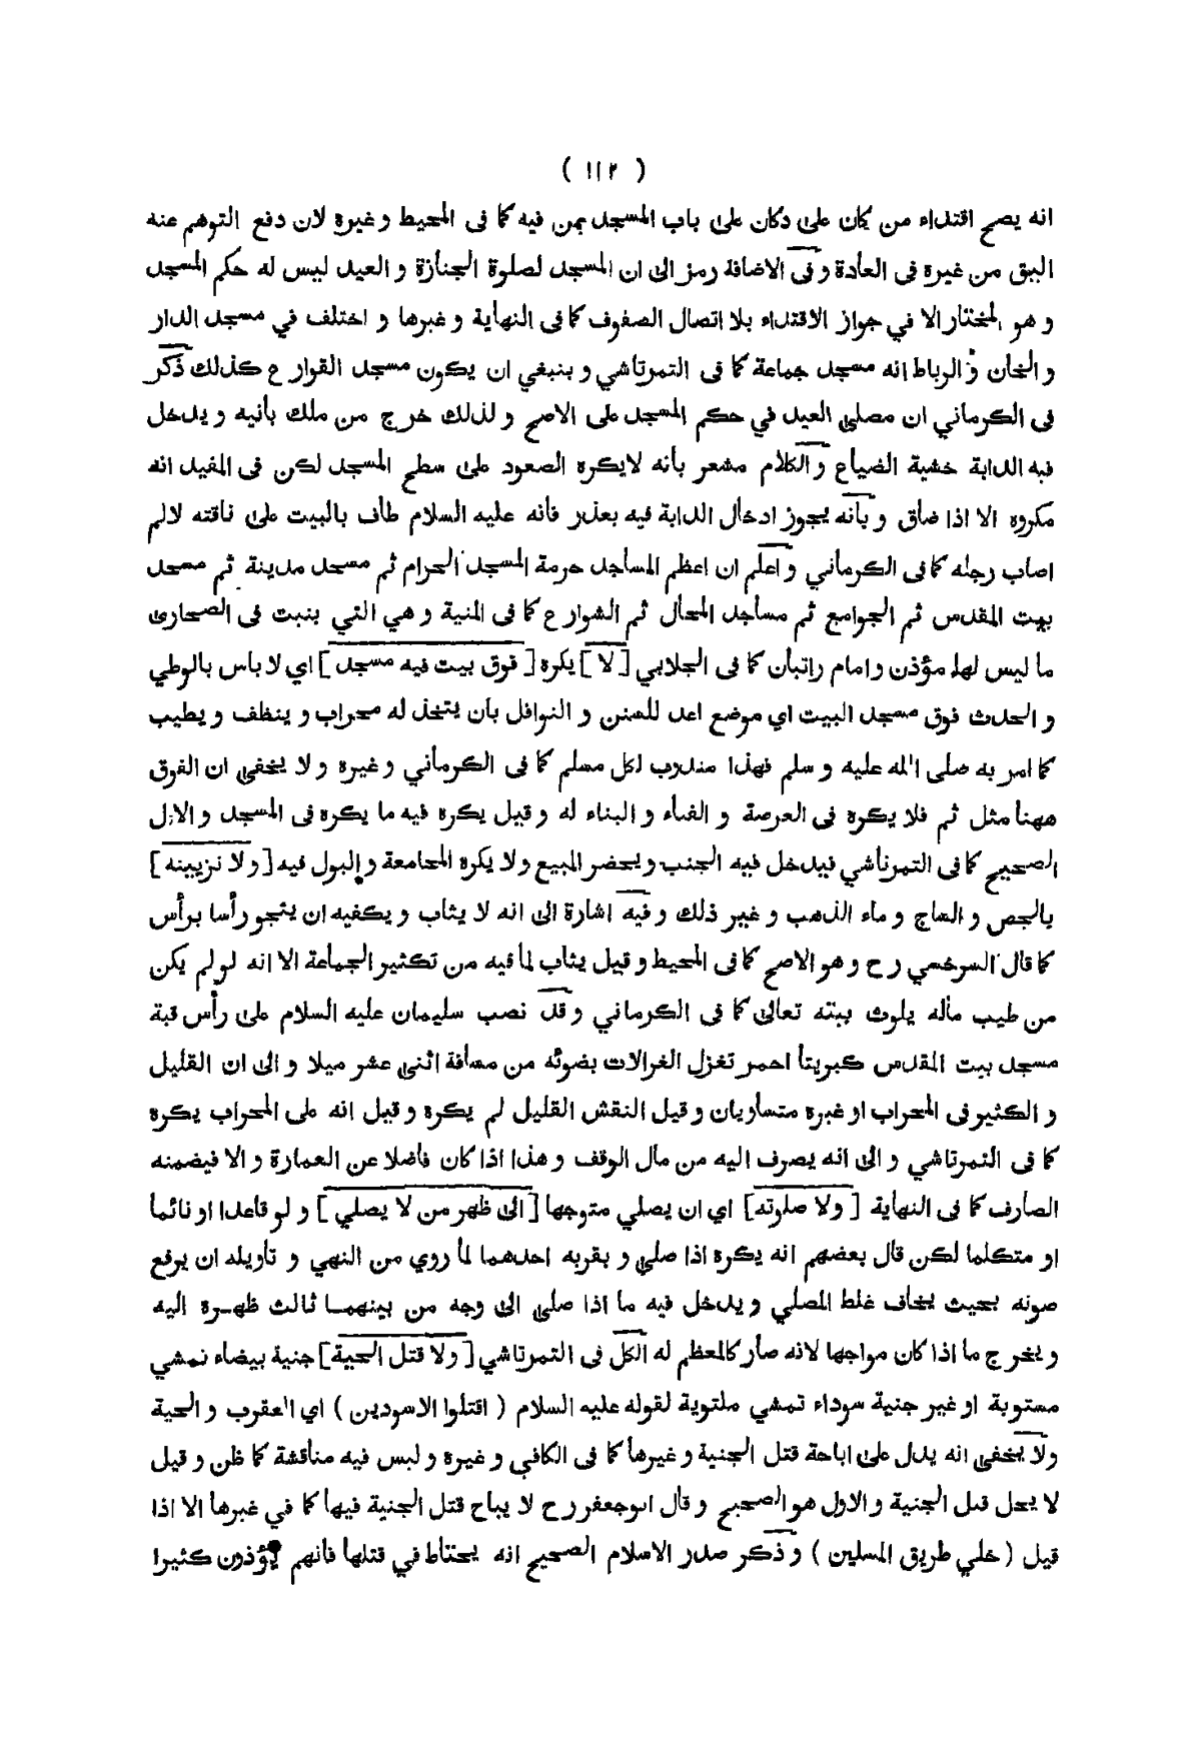 ( ١١٢ )
انه يصح اقتداء من كان على دكان على باب المسجد بمن فيه كما فى المحيط و غيره لان دفع التوهم عنه
اليق من غيره فى العادة و فى الاضافة رمز الى ان المسجد لصلوة الجنازة و العيد ليس له حكم المسجد
و هو المختار الا في جواز الاقتداء بلا اتصال الصفوف كما فى النهاية و غيرها و اختلف في مسجد الدار
و الخان و الرباط انه مسجد جماعة كما فى التمرتاشي و ينبغي ان يكون مسجد القوارع كذلك ذكر
فى الكرماني ان مصلى العيد في حكم المسجد على الاصح و لذلك خرج من ملك بانيه و يدخل
فيه الدابة خشية الضياع و الكلام مشعر بأنه لايكره الصعود على سطح المسجد لكن فى المفيد انه
مكروه الا اذا ضاق و بأنه يجوز ادخال الدابة فيه بعذر فانه عليه السلام طاف بالبيت على ناقته لالم
اصاب رجله كما فى الكرماني و اعلم ان اعظم المساجد حرمة المسجد الحرام ثم مسجد مدينة ثم مسجد
بيت المقدس ثم الجوامع ثم مساجد المحال ثم الشوارع كما فى المنية و هي التي بنيت فى الصحارى
ما ليس لها مؤذن و امام راتبان كما فى الجلابي [ لا ] يكره [ فوق بيت فيه مسجد ] اي لا باس بالوطي
و الحدث فوق مسجد البيت اي موضع اعد للسنن و النوافل بان يتخذ له محراب و ينظف و يطيب
كما امر به صلى الله عليه و سلم فهذا مندوب لكل مسلم كما فى الكرماني و غيره و لا يخفى ان الفوق
ههنا مثل ثم فلا يكره فى العرصة و الفناء و البناء له و قيل يكره فيه ما يكره فى المسجد و الاول
الصحيح كما فى التمرتاشي فيدخل فيه الجنب و يحضر المبيع ولا يكره المجامعة و البول فيه [ ولا تزيينه ]
بالجص و الساج و ماء الذهب و غير ذلك و فيه اشارة الى انه لا يثاب و يكفيه ان ينجو رأسا برأس
كما قال السرخسي رح و هو الاصح كما فى المحيط و قيل يثاب لما فيه من تكثير الجماعة الا انه لو لم يكن
من طيب ماله يلوث بيته تعالى كما فى الكرماني و قد نصب سليمان عليه السلام على رأس قبة
مسجد بيت المقدس كبريتا احمر تغزل الغزالات بضوئه من مسافة اثنى عشر ميلا و الى ان القليل
و الكثير فى المحراب او غيره متساويان و قيل النقش القليل لم يكره و قيل انه على المحراب يكره
كما فى التمرتاشي و الى انه يصرف اليه من مال الوقف و هذا اذا كان فاضلا عن العمارة و الا فيضمنه
الصارف كما فى النهاية [ ولا صلوته ] اي ان يصلي متوجها [ الى ظهر من لا يصلي ] و لو قاعدا او نائما
او متكلما لكن قال بعضهم انه يكره اذا صلى و بقربه احدهما لما روي من النهي و تاويله ان يرفع
صوته بحيث يخاف غلط المصلي و يدخل فيه ما اذا صلى الى وجه من بينهما ثالث ظهره اليه
و يخرج ما اذا كان مواجها لانه صار كالمعظم له الكل فى التمرتاشي [ ولا قتل الحية ] جنية بيضاء تمشي
مستوية او غير جنية سوداء تمشي ملتوية لقوله عليه السلام ( اقتلوا الاسودين ) اي العقرب و الحية
ولا يخفى انه يدل على اباحة قتل الجنية و غيرها كما فى الكافي و غيره و ليس فيه مناقشة كما ظن و قيل
لا يحل قتل الجنية و الاول هو الصحيح و قال ابوجعفر رح لا يباح قتل الجنية فيها كما في غيرها الا اذا
قيل ( خلي طريق المسلين ) و ذكر صدر الاسلام الصحيح انه يحتاط في قتلها فانهم يؤذون كثيرا